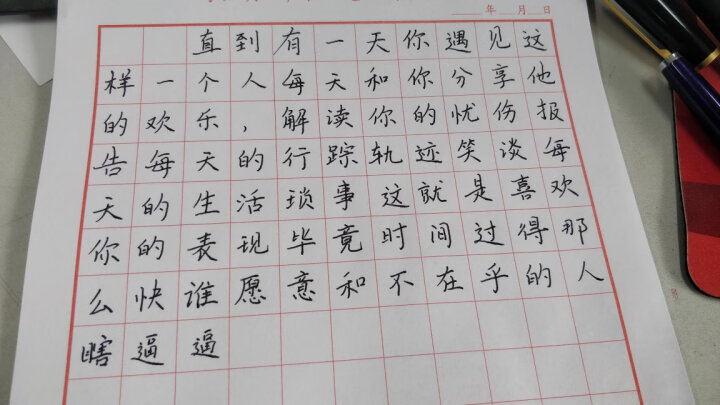 年 月 日
直到有一天你遇见这
样一个人每天和你分享他
的欢乐，解读你的忧伤报
告每天的行踪轨迹笑谈每
天的生活琐事这就是喜欢
你的表现毕竟时间过得那
么快谁愿意和不在乎的人
瞎逼逼